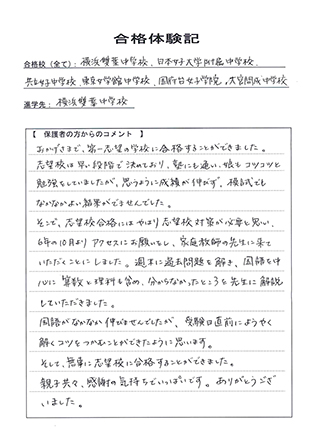 合格体験記
合格校（全て）: 横浜雙葉中学校、日本女子大学附属中学校
共立女子中学校、東京女学館中学校、国府台女子学院、大宮開成中学校
進学先: 横浜雙葉中学校
【 保護者の方からのコメント 】
おかげさまで、第一志望の学校に合格することができました。
志望校は早い段階で決めており、塾にも通い、娘もコツコツと
勉強をしていましたが、思うように成績が伸びず、模試でも
なかなかよい結果がでませんでした。
そこで、志望校合格にはやはり志望校対策が必要と思い、
6年の10月よりアクセスにお願いをし、家庭教師の先生に来て
いただくことにしました。週末に過去問題を解き、国語を中
心に算数と理科も含め、分からなかったところを先生に解説
していただきました。
国語がなかなか伸びませんでしたが、受験日直前にようやく
解くコツをつかむことができたように思います。
そして、無事に志望校に合格することができました。
親子共々、感謝の気持ちでいっぱいです。ありがとうござ
いました。